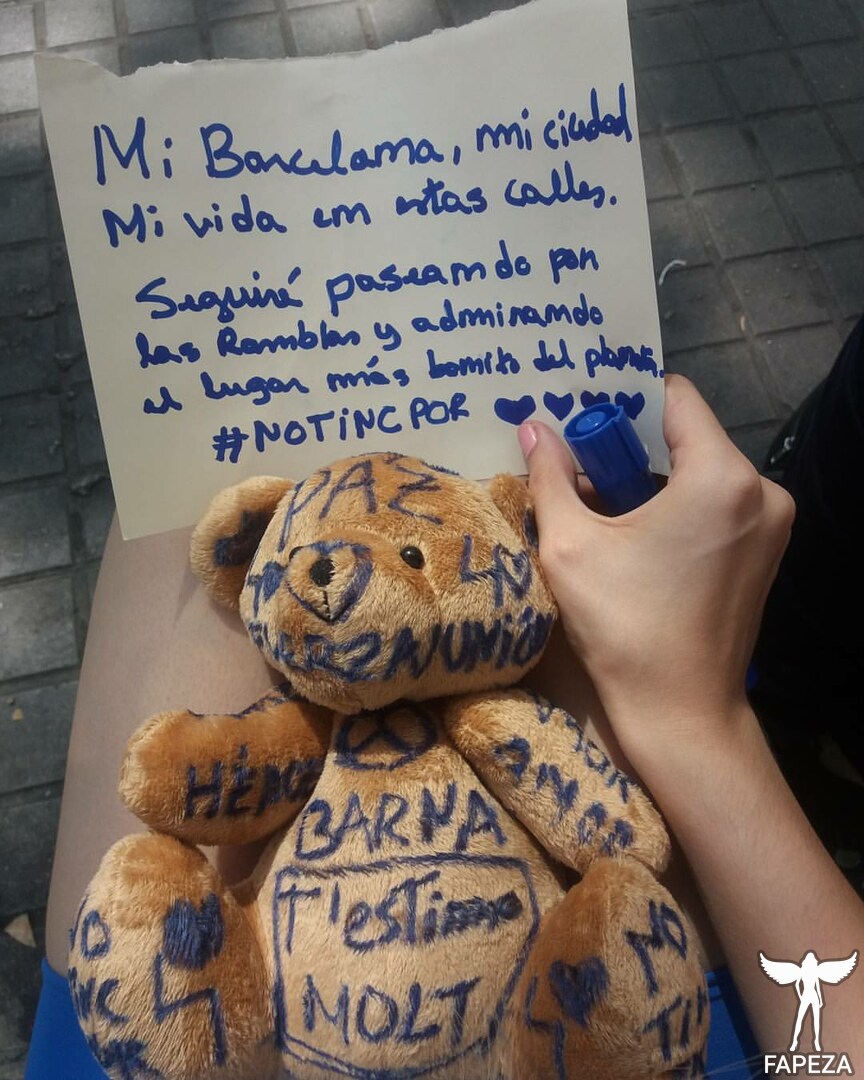 Mi Barcelona, mi ciudad
Mi vida en estas calles.
Seguiré paseando por
las Ramblas y admirando
el lugar más bonito del planeta.
#NOTINCPOR
PAZ
FUERZA UNIÓN
BARNA
T'estimo
MOLT
NO
NO
FAPEZA